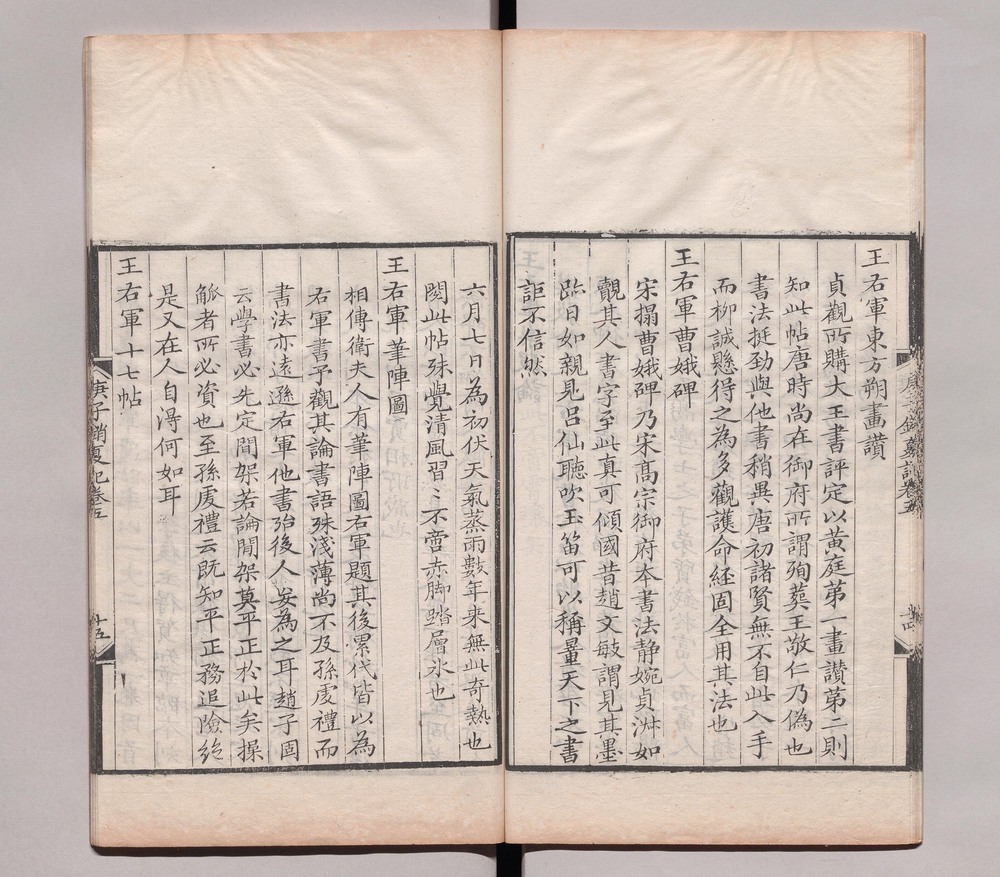 王右軍東方朔畫讚
貞觀所購大王書評定以黃庭苐一畫讚苐二則
知此帖唐時尚在御府所謂殉葬王敬仁乃偽也
書法挺勁與他書稍異唐初諸賢無不自此入手
而柳誠懸得之為多觀護命經固全用其法也
王右軍曹娥碑
宋搨曹娥碑乃宋髙宗御府本書法静婉貞淋如
覿其人書字至此真可傾國昔趙文敏謂見其墨
跡日如親見呂仙聽吹玉笛可以稱量天下之書
詎不信然
六月七日為初伏天氣蒸雨數年来無此奇熱也
閱此帖殊覺清風習〻不啻赤脚踏層氷也
王右軍筆陣圖
相傳衛夫人有筆陣圖右軍題其後累代皆以為
右軍書予觀其論書語殊淺薄尚不及孫虔禮而
書法亦遠遜右軍他書殆後人妄為之耳趙子固
云學書必先定間架若論間架莫平正於此矣操
觚者所必資也至孫虔禮云既知平正務追險絶
是又在人自得何如耳
王右軍十七帖
庚子銷夏記卷五
十五